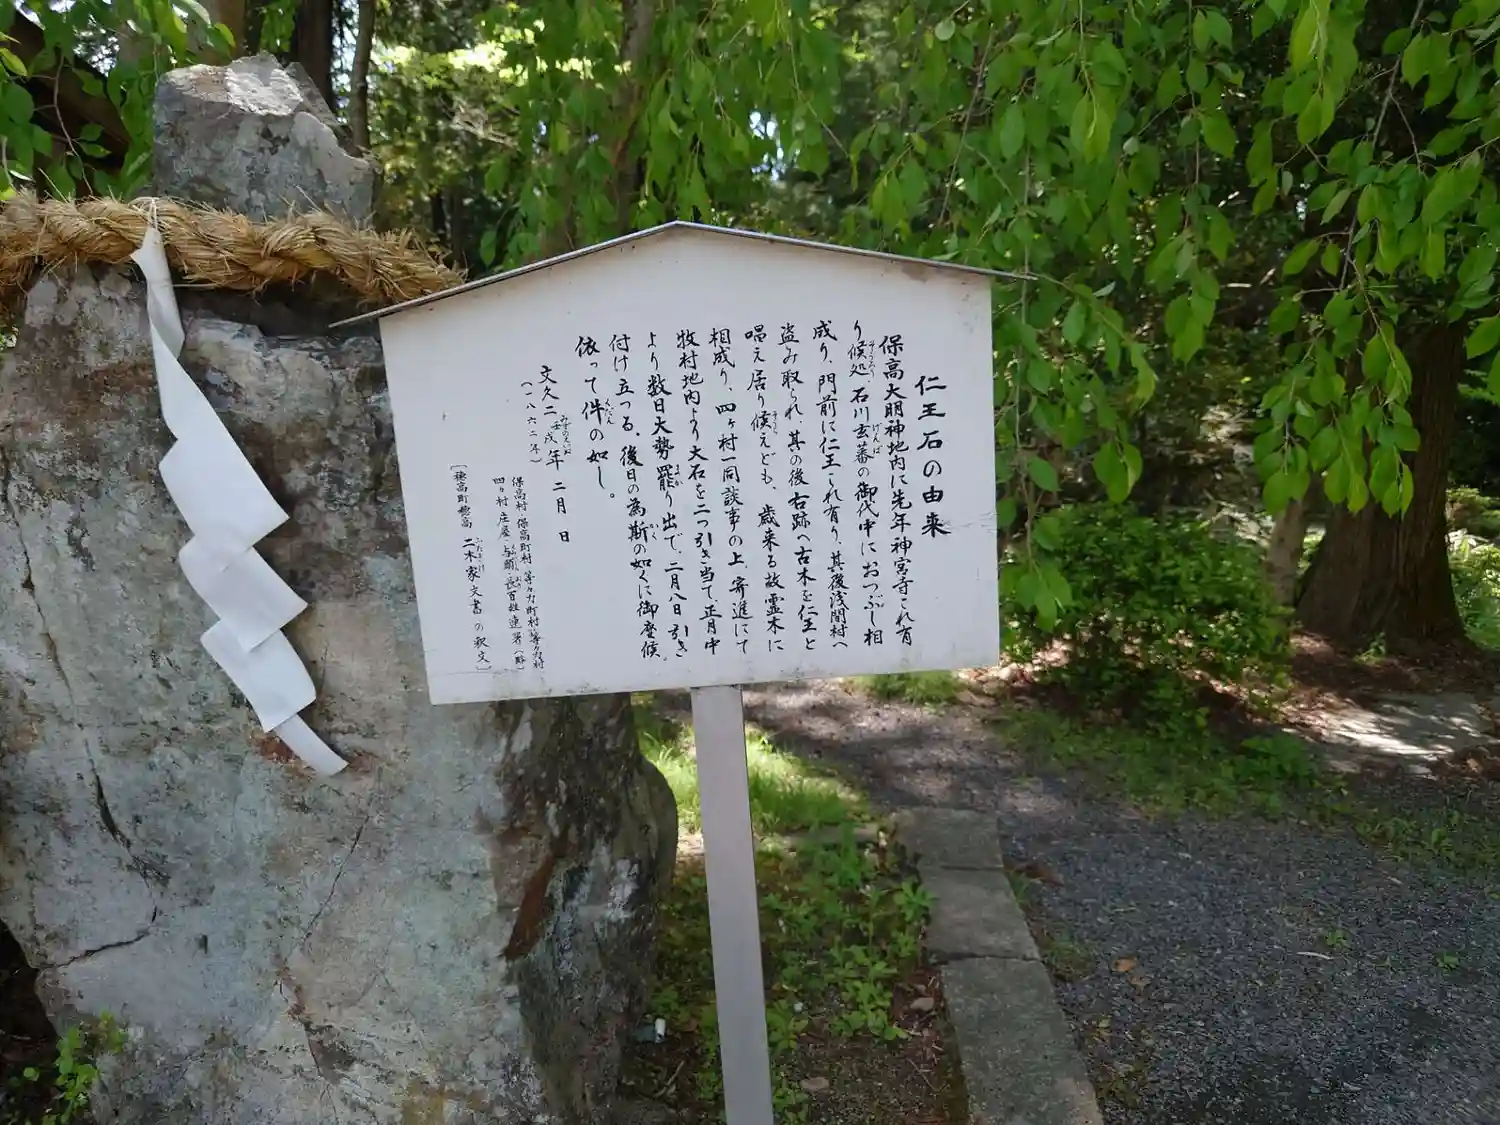 仁王石の由来
保高大明神地内に先年神宮寺これ有
り候処、石川玄蕃の御代中におつぶし相
成り、門前に仁王これ有り、其後浅間村へ
盗み取られ、其の後古跡へ古木を仁王と
唱え居り候えども、歳来る故霊木に
相成り、四ヶ村一同談事の上、寄進にて
牧村地内より大石を二つ引き当て、正月中
より数日大勢罷り出で、二月八日引き
付け立つる。後日の為斯の如くに御座候。
依って件の如し。
文久二壬戌年 二月 日
(一八六二年)
保高村・保高町村・等々力町村・等々力村
四ヶ村庄屋・与頭・長百姓連署(略)
〔穂高町穂高 二木家文書の釈文〕